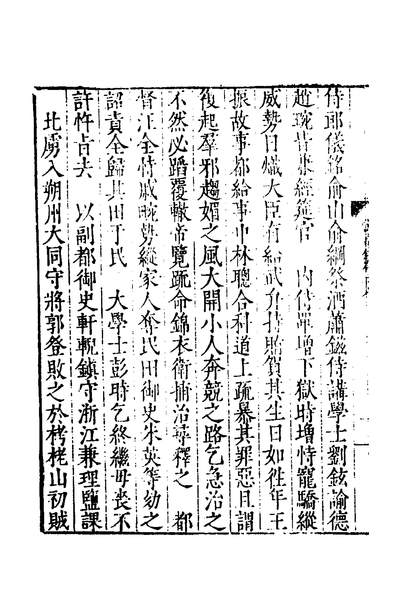 侍郎儀銘俞山俞綱祭酒蕭鎡侍講學士劉鉉諭德
趙琬昔兼經筵官　内侍單增下獄時增恃寵驕縱
威勢日熾大臣有紿武弁持賂賀其生日如徃年王
振故事都給事中林聰合科道上疏暴其罪惡且謂
復起羣邪趨媚之風大開小人奔競之路乞急治之
不然必蹈覆轍帝覽疏命錦衣衛捕治尋釋之　都
督汪全恃戚畹勢縱家人奪民田御史朱英等劾之
詔責全歸其田于民　大學士彭時乞終繼母喪不
許忤㫖去　以副都御史軒輗鎮守浙江兼理鹽課
北虜入朔州大同守將郭登敗之於栲栳山初賊